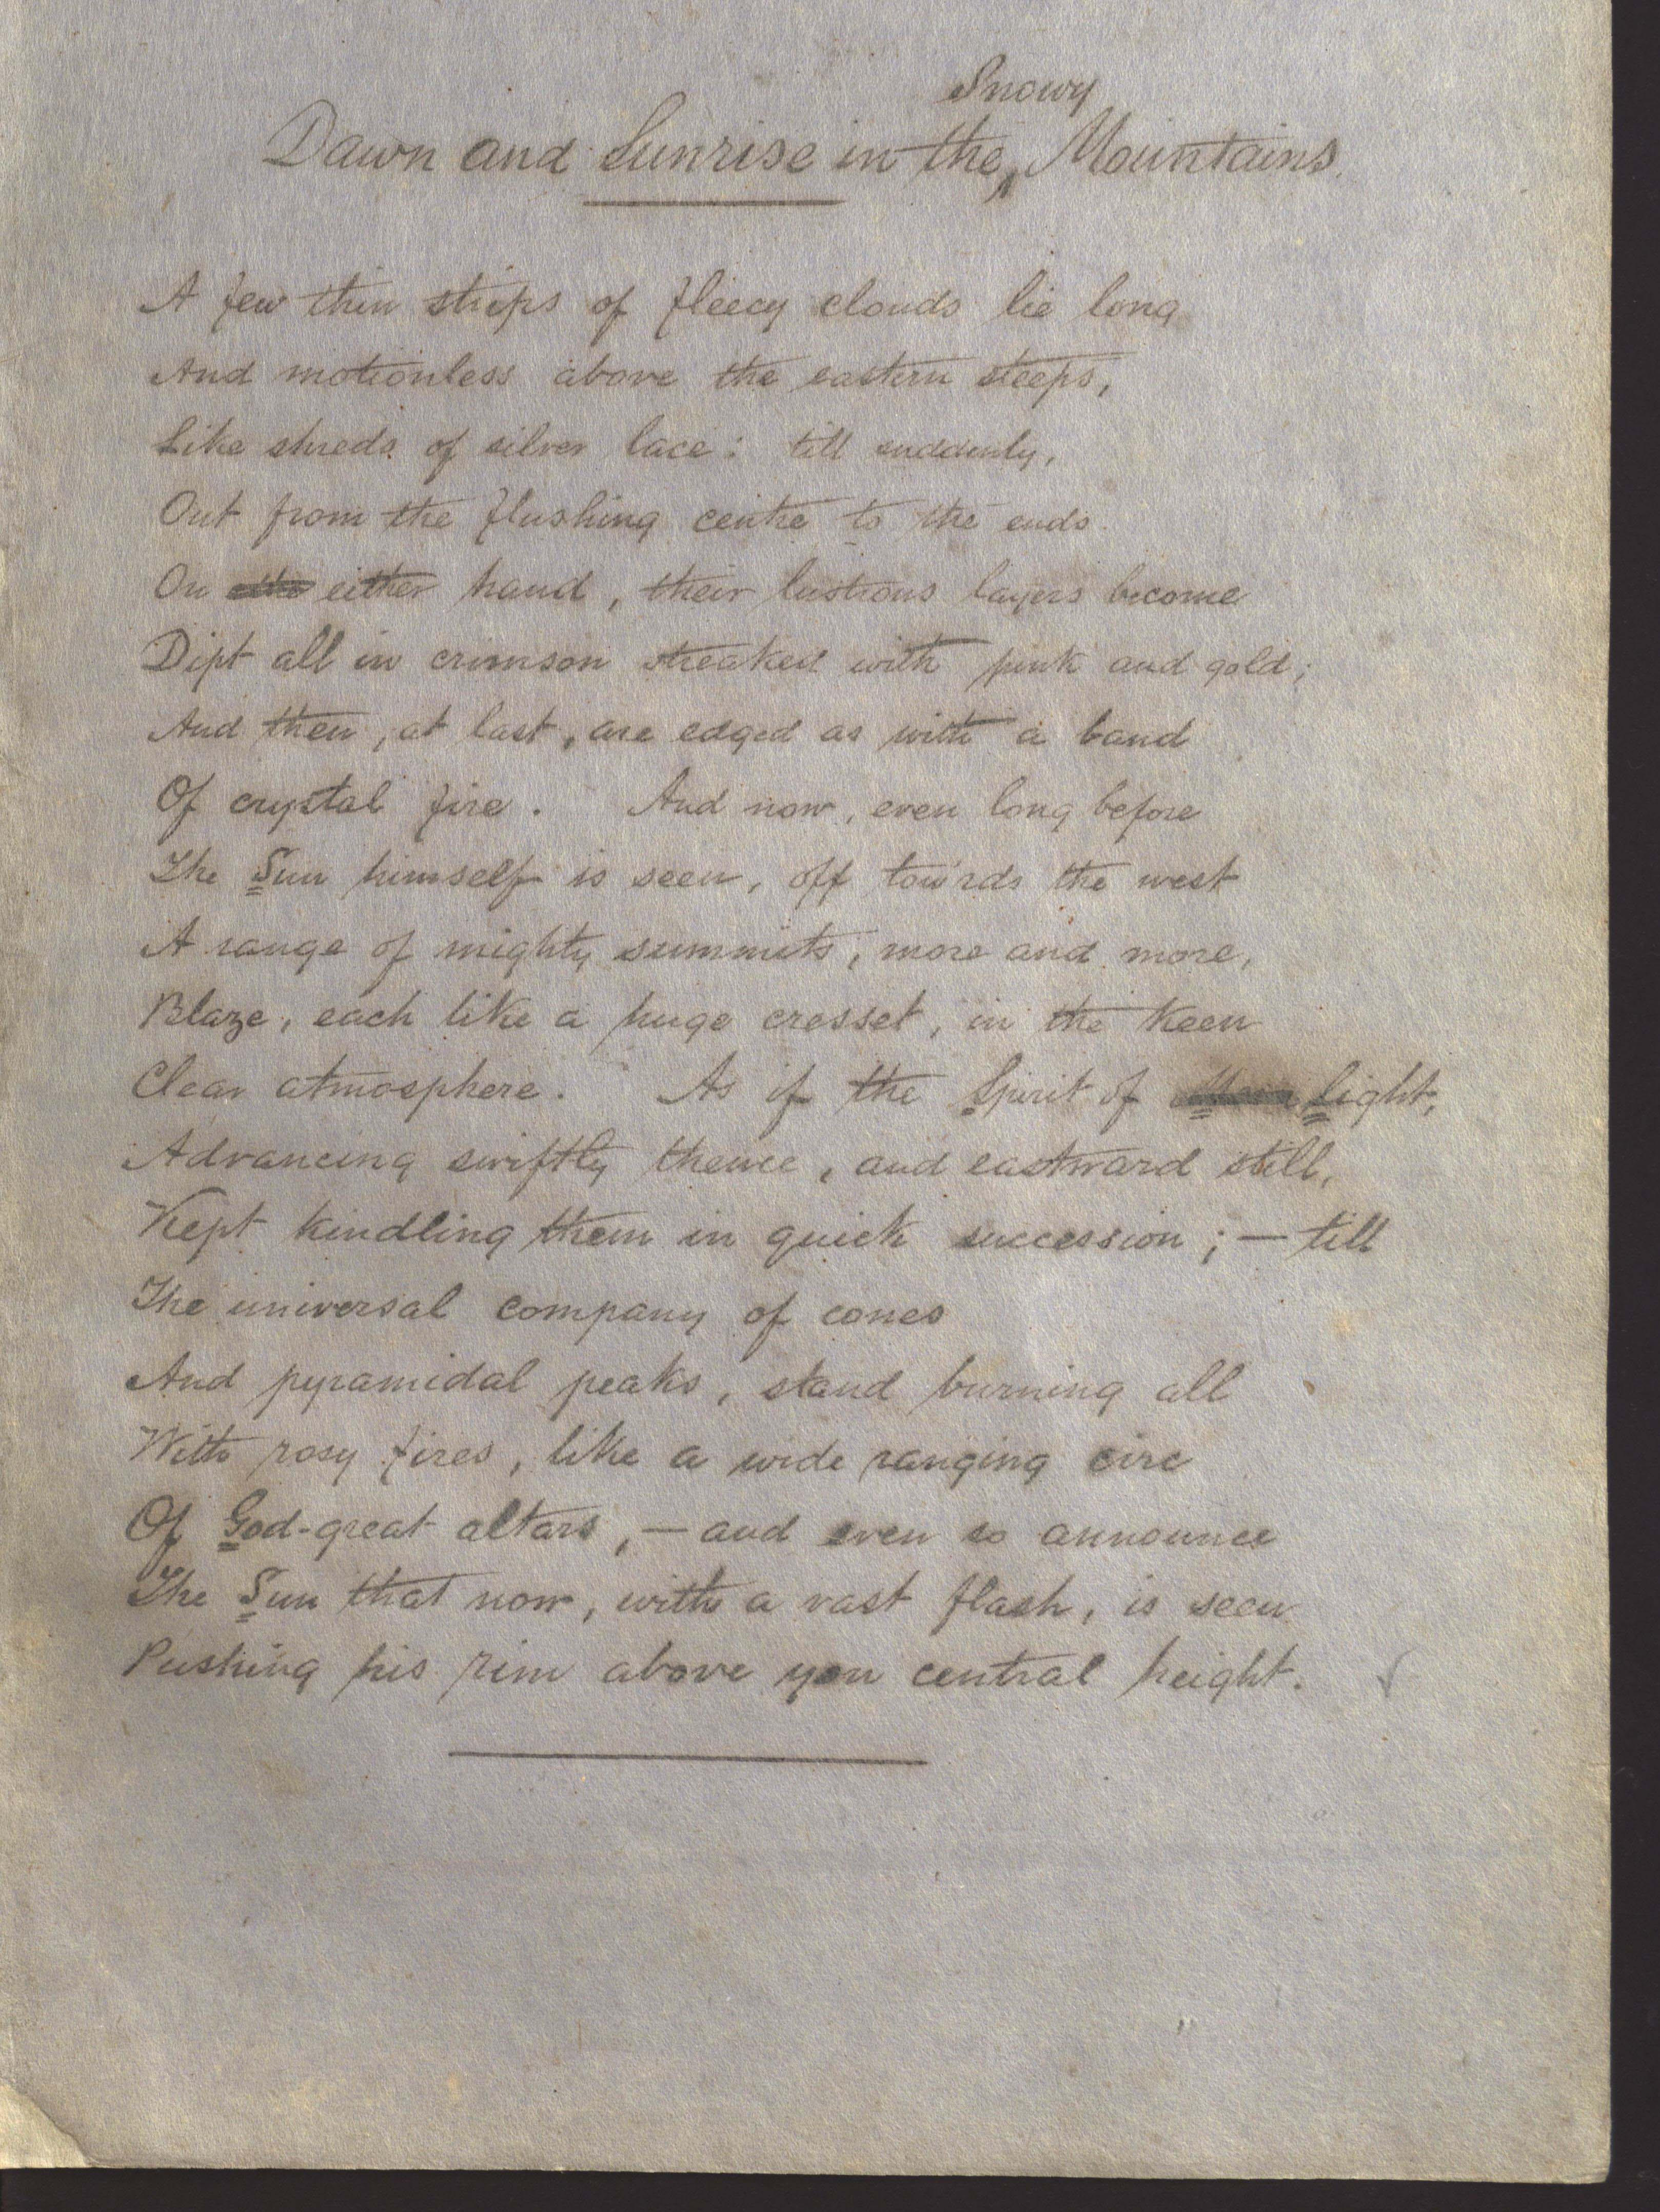 Dawn and Sunrise in the Snowy Mountains.
A few thin strips of fleecy clouds lie long
And motionless above the eastern steeps,
Like shreds of silver lace: till suddenly,
Out from the flushing centre to the ends
On either hand, their lustrous layers become
Dipt all in crimson streaked with pink and gold;
And then, at last, are edged as with a band
Of crystal fire. And now, even long before
The Sun himself is seen, off tow'rds the west
A range of mighty summits, more and more,
Blaze, each like a huge cresset, in the keen
Clear atmosphere. As if the Spirit of Light,
Advancing swiftly thence, and eastward still,
Kept kindling them in quick succession; — till
The universal company of cones
And pyramidal peaks, stand burning all
With rosy fires, like a wide ranging circ
Of God-great altars, — and even so announce
The Sun that now, with a vast flash, is seen
Pushing his rim above yon central height.